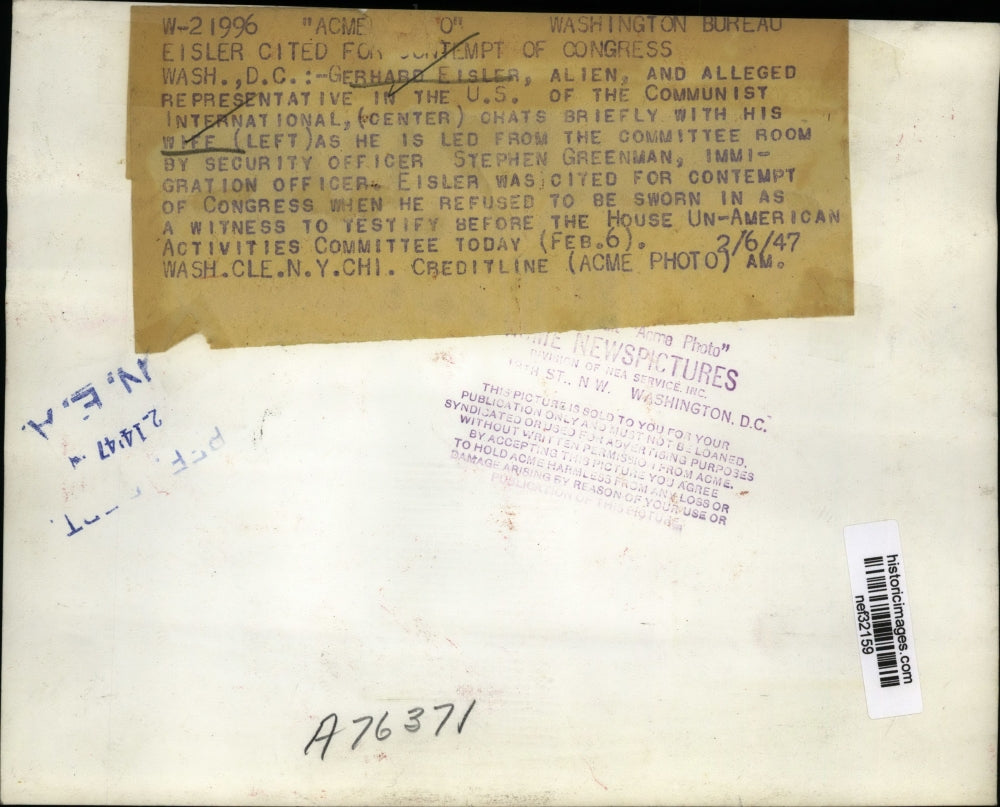 W-21996 "ACME O" WASHINGTON BUREAU
EISLER CITED FOR CONTEMPT OF CONGRESS
WASH.,D.C.:-GERHARD EISLER, ALIEN, AND ALLEGED
REPRESENTATIVE IN THE U.S. OF THE COMMUNIST
INTERNATIONAL,(CENTER) CHATS BRIEFLY WITH HIS
WIFE (LEFT)AS HE IS LED FROM THE COMMITTEE ROOM
BY SECURITY OFFICER STEPHEN GREENMAN, IMMI-
GRATION OFFICER. EISLER WAS CITED FOR CONTEMPT
OF CONGRESS WHEN HE REFUSED TO BE SWORN IN AS
A WITNESS TO TESTIFY BEFORE THE HOUSE UN-AMERICAN
ACTIVITIES COMMITTEE TODAY (FEB.6). 2/6/47
WASH.CLE.N.Y.CHI. CREDITLINE (ACME PHOTO) AM.
"Acme Photo"
ACME NEWSPICTURES
DIVISION OF NEA SERVICE, INC.
ST., N.W. WASHINGTON, D.C.
THIS PICTURE IS SOLD TO YOU FOR YOUR
PUBLICATION ONLY AND MUST NOT BE LOANED,
SYNDICATED OR USED FOR ADVERTISING PURPOSES
WITHOUT WRITTEN PERMISSION FROM ACME.
BY ACCEPTING THIS PICTURE YOU AGREE
TO HOLD ACME HARMLESS FROM ANY LOSS OR
DAMAGE ARISING BY REASON OF YOUR USE OR
PUBLICATION OF THIS PICTURE
N.E.A.
2.14'47
REF. DEPT.
historicimages.com
nef32159
A76371